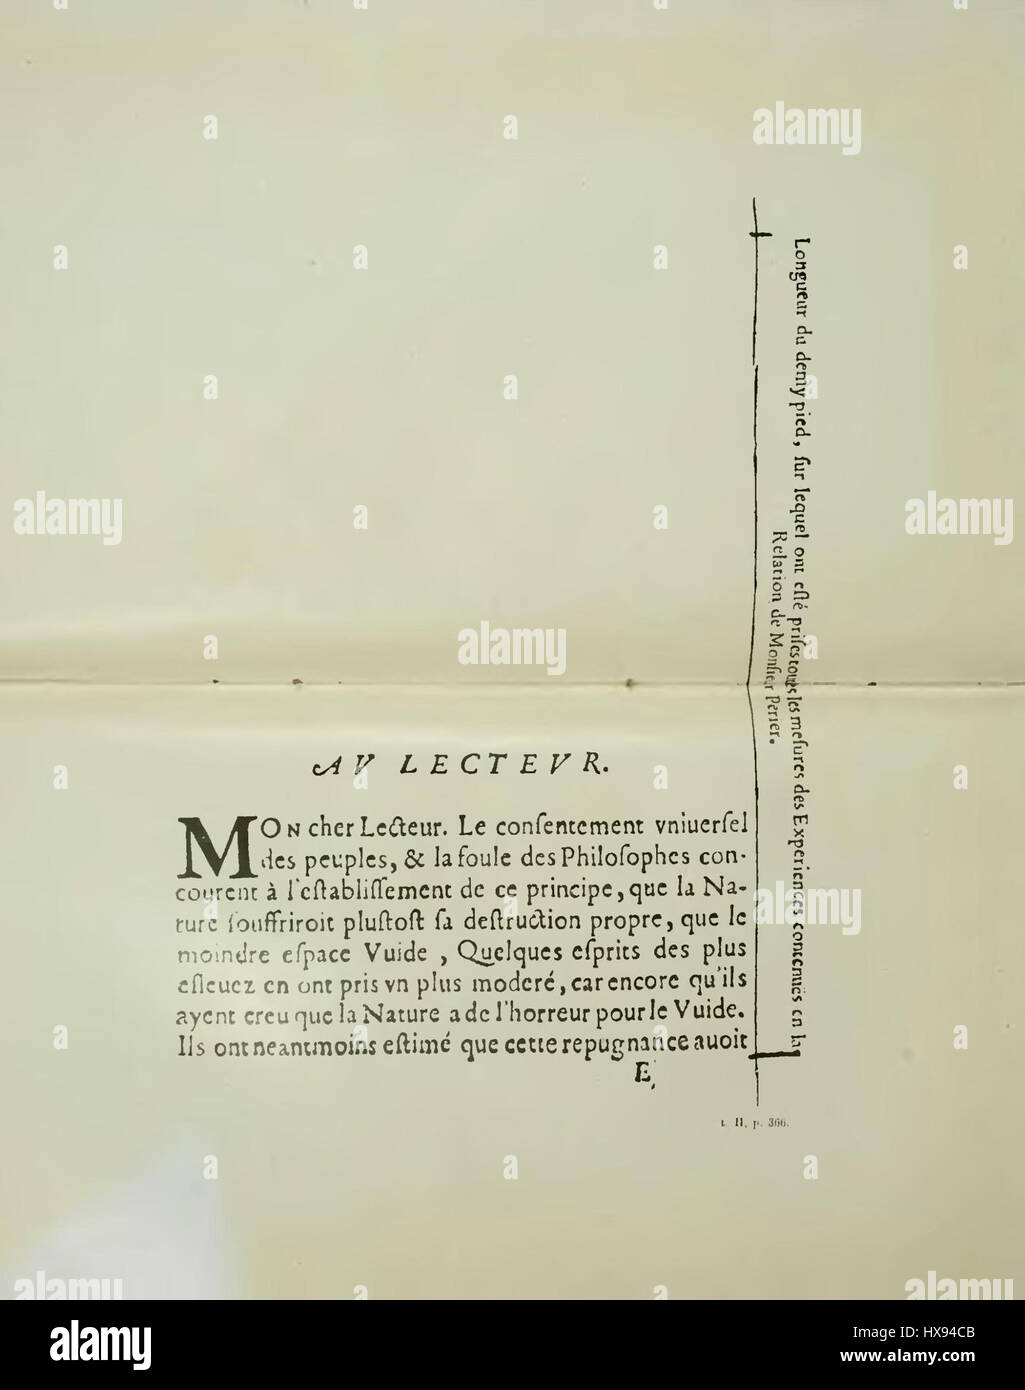 AV LECTEVR.
MON cher Lecteur. Le conſentement vniuerſel
des peuples, & la foule des Philoſophes con-
courent à l'eſtabliſſement de ce principe, que la Na-
ture ſouffriroit pluſtoſt ſa deſtruction propre, que le
moindre eſpace Vuide, Quelques eſprits des plus
eſleuez en ont pris vn plus moderé, car encore qu'ils
ayent creu que la Nature a de l'horreur pour le Vuide.
Ils ont neantmoins eſtimé que cette repugnance auoit
E
Longueur du demy pied, ſur lequel ont eſté priſes toutes les meſures des Experiences contenuës en la
Relation de Monſieur Perier.
t. II, p. 366.
alamy
alamy
alamy
alamy
alamy
Image ID: HX94CB
www.alamy.com